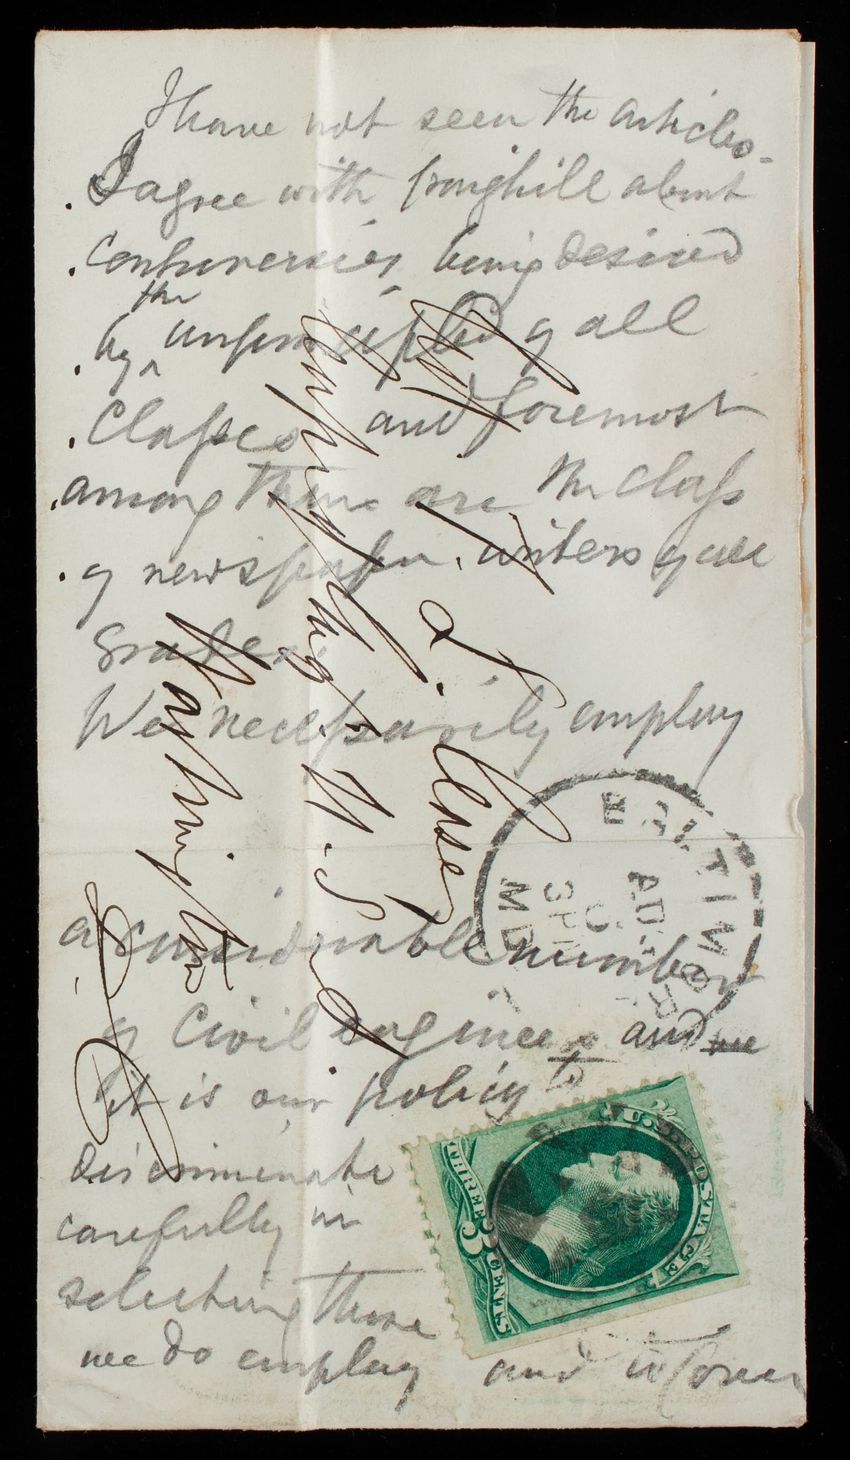 I have not seen the articles.
I agree with Craighill about
controversies being desired
by the unprincipled of all
Classes and foremost
among them are the class
of newspaper writers of all
grades.
We necessarily employ
a considerable number
of Civil engineers and we
it is our policy to
discriminate
carefully in
selecting those
we do employ and
Genl
T. L. Casey
Corps of Eng. U.S.A
Washington
D.C.
BALTIMORE
MD
U.S. POSTAGE
THREE 3 CENTS